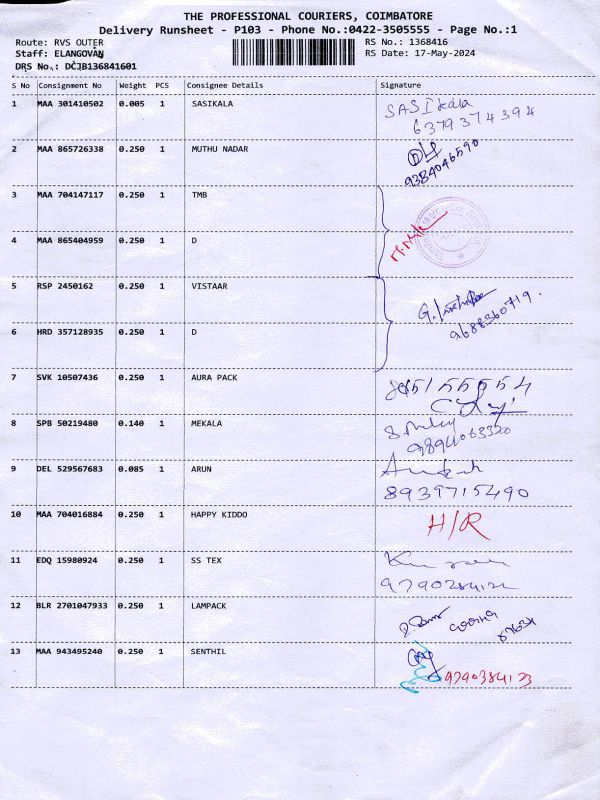 THE PROFESSIONAL COURIERS, COIMBATORE
Delivery Runsheet - P103 - Phone No.:0422-3505555 - Page No.:1
Route: RVS OUTER RS No.: 1368416
Staff: ELANGOVAN RS Date: 17-May-2024
DRS No.: DCJB136841601
S No Consignment No Weight PCS Consignee Details Signature
1 MAA 301410502 0.005 1 SASIKALA SASIkala
6379374394
2 MAA 865726338 0.250 1 MUTHU NADAR
9384046590
3 MAA 704147117 0.250 1 TMB
4 MAA 865404959 0.250 1 D
5 RSP 2450162 0.250 1 VISTAAR
9688360719.
6 HRD 357128935 0.250 1 D
7 SVK 10507436 0.250 1 AURA PACK
8 SPB 50219480 0.140 1 MEKALA
9 DEL 529567683 0.085 1 ARUN
8939715490
10 MAA 704016884 0.250 1 HAPPY KIDDO H/R
11 EDQ 15980924 0.250 1 SS TEX
12 BLR 2701047933 0.250 1 LAMPACK
13 MAA 943495240 0.250 1 SENTHIL
9790384123